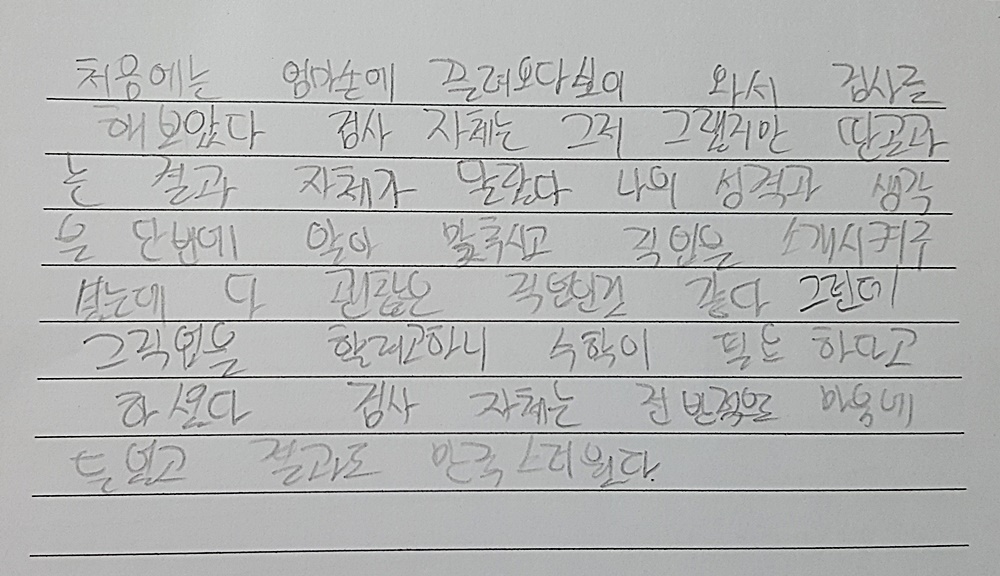 처음에는 엄마손에 끌려오다싶이 와서 검사를
해보았다 검사 자체는 그저 그랬지만 딴곳과
는 결과 자체가 달랐다 나의 성격과 생각
을 단번에 알아 맞추시고 직업을 소개시켜주
셨는데 다 괜찮은 직업인것 같다 그런데
그직업을 할려고하니 수학이 필요 하다고
하셨다 검사 자체는 전반적으로 마음에
들었고 결과도 만족스러웠다.